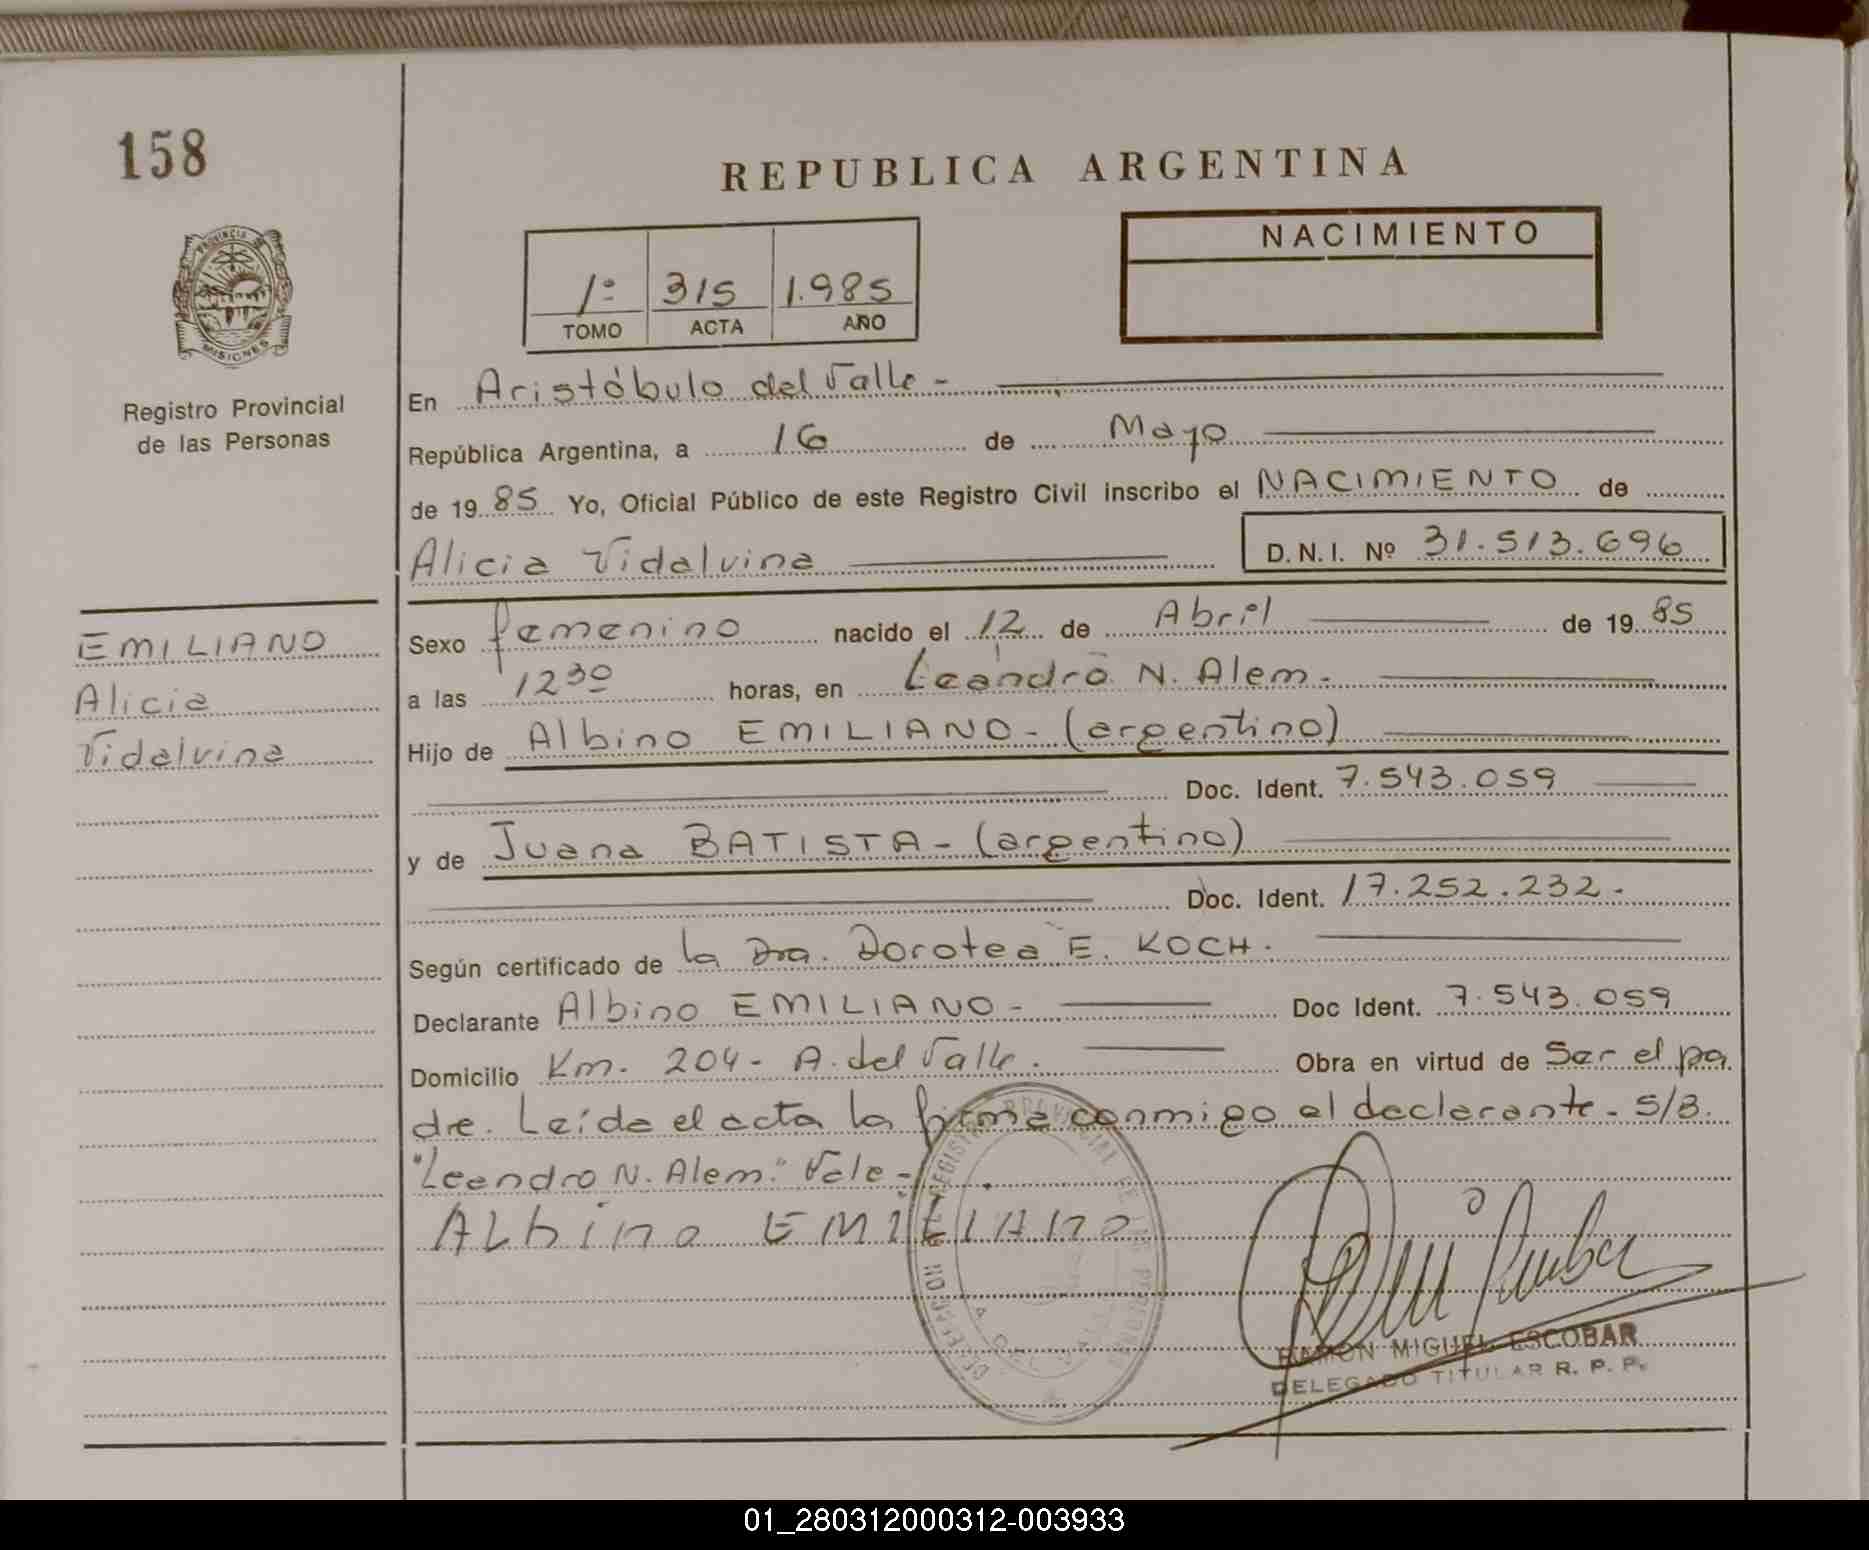 158
REPUBLICA ARGENTINA
PROVINCIA DE
MISIONES
Registro Provincial
de las Personas
1º 315 1.985
TOMO ACTA AÑO
NACIMIENTO
En Aristóbulo del Valle -
República Argentina, a 16 de Mayo
de 19 85 Yo, Oficial Público de este Registro Civil inscribo el NACIMIENTO de
Alicia Vidalvina D.N.I. Nº 31.513.696
EMILIANO
Alicia
Vidalvina
Sexo femenino nacido el 12 de Abril de 19 85
a las 12 30 horas, en Leandro N. Alem -
Hijo de Albino EMILIANO - (argentino)
Doc. Ident. 7.543.059
y de Juana BATISTA - (argentino)
Doc. Ident. 17.252.232 -
Según certificado de la Dra. Dorotea E. KOCH -
Declarante Albino EMILIANO - Doc Ident. 7.543.059
Domicilio Km. 204 - A. del Valle . Obra en virtud de Ser el pa
dre. Leída el acta la firma conmigo el declarante - S/B.
"Leandro N. Alem." Vale -
ALbino EMILIANO
RAMON MIGUEL ESCOBAR
DELEGADO TITULAR R. P. P.
01_280312000312-003933